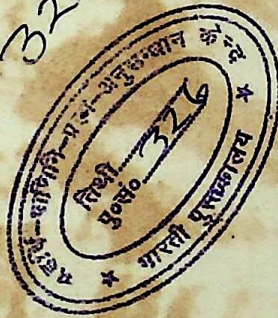 32
पाणिनि अनुसन्धान केन्द्र
तिथी........
पु०सं० 326
* भारती पुस्तकालय *